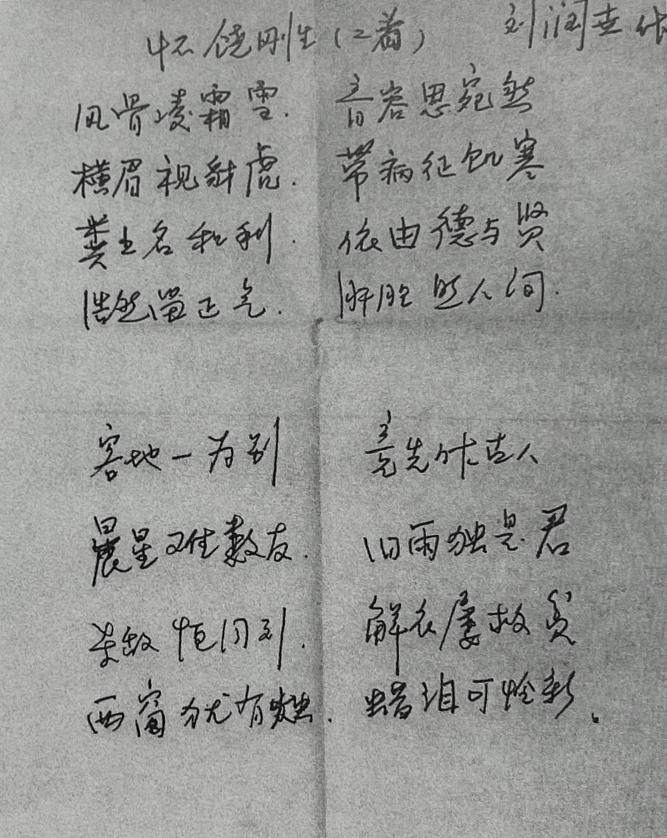 怀饶刚生（二首） 刘润 作
风骨凌霜雪. 音容思宛然
横眉视豺虎. 带病征饥寒
粪土名和利. 依由德与贤
浩然留正气. 肝胆照人间.
客地一为别 竟先作古人
晨星难数友. 旧雨独是君
恒同 . 解衣屡救贫
西窗犹有烛. 蜡泪可怜新。